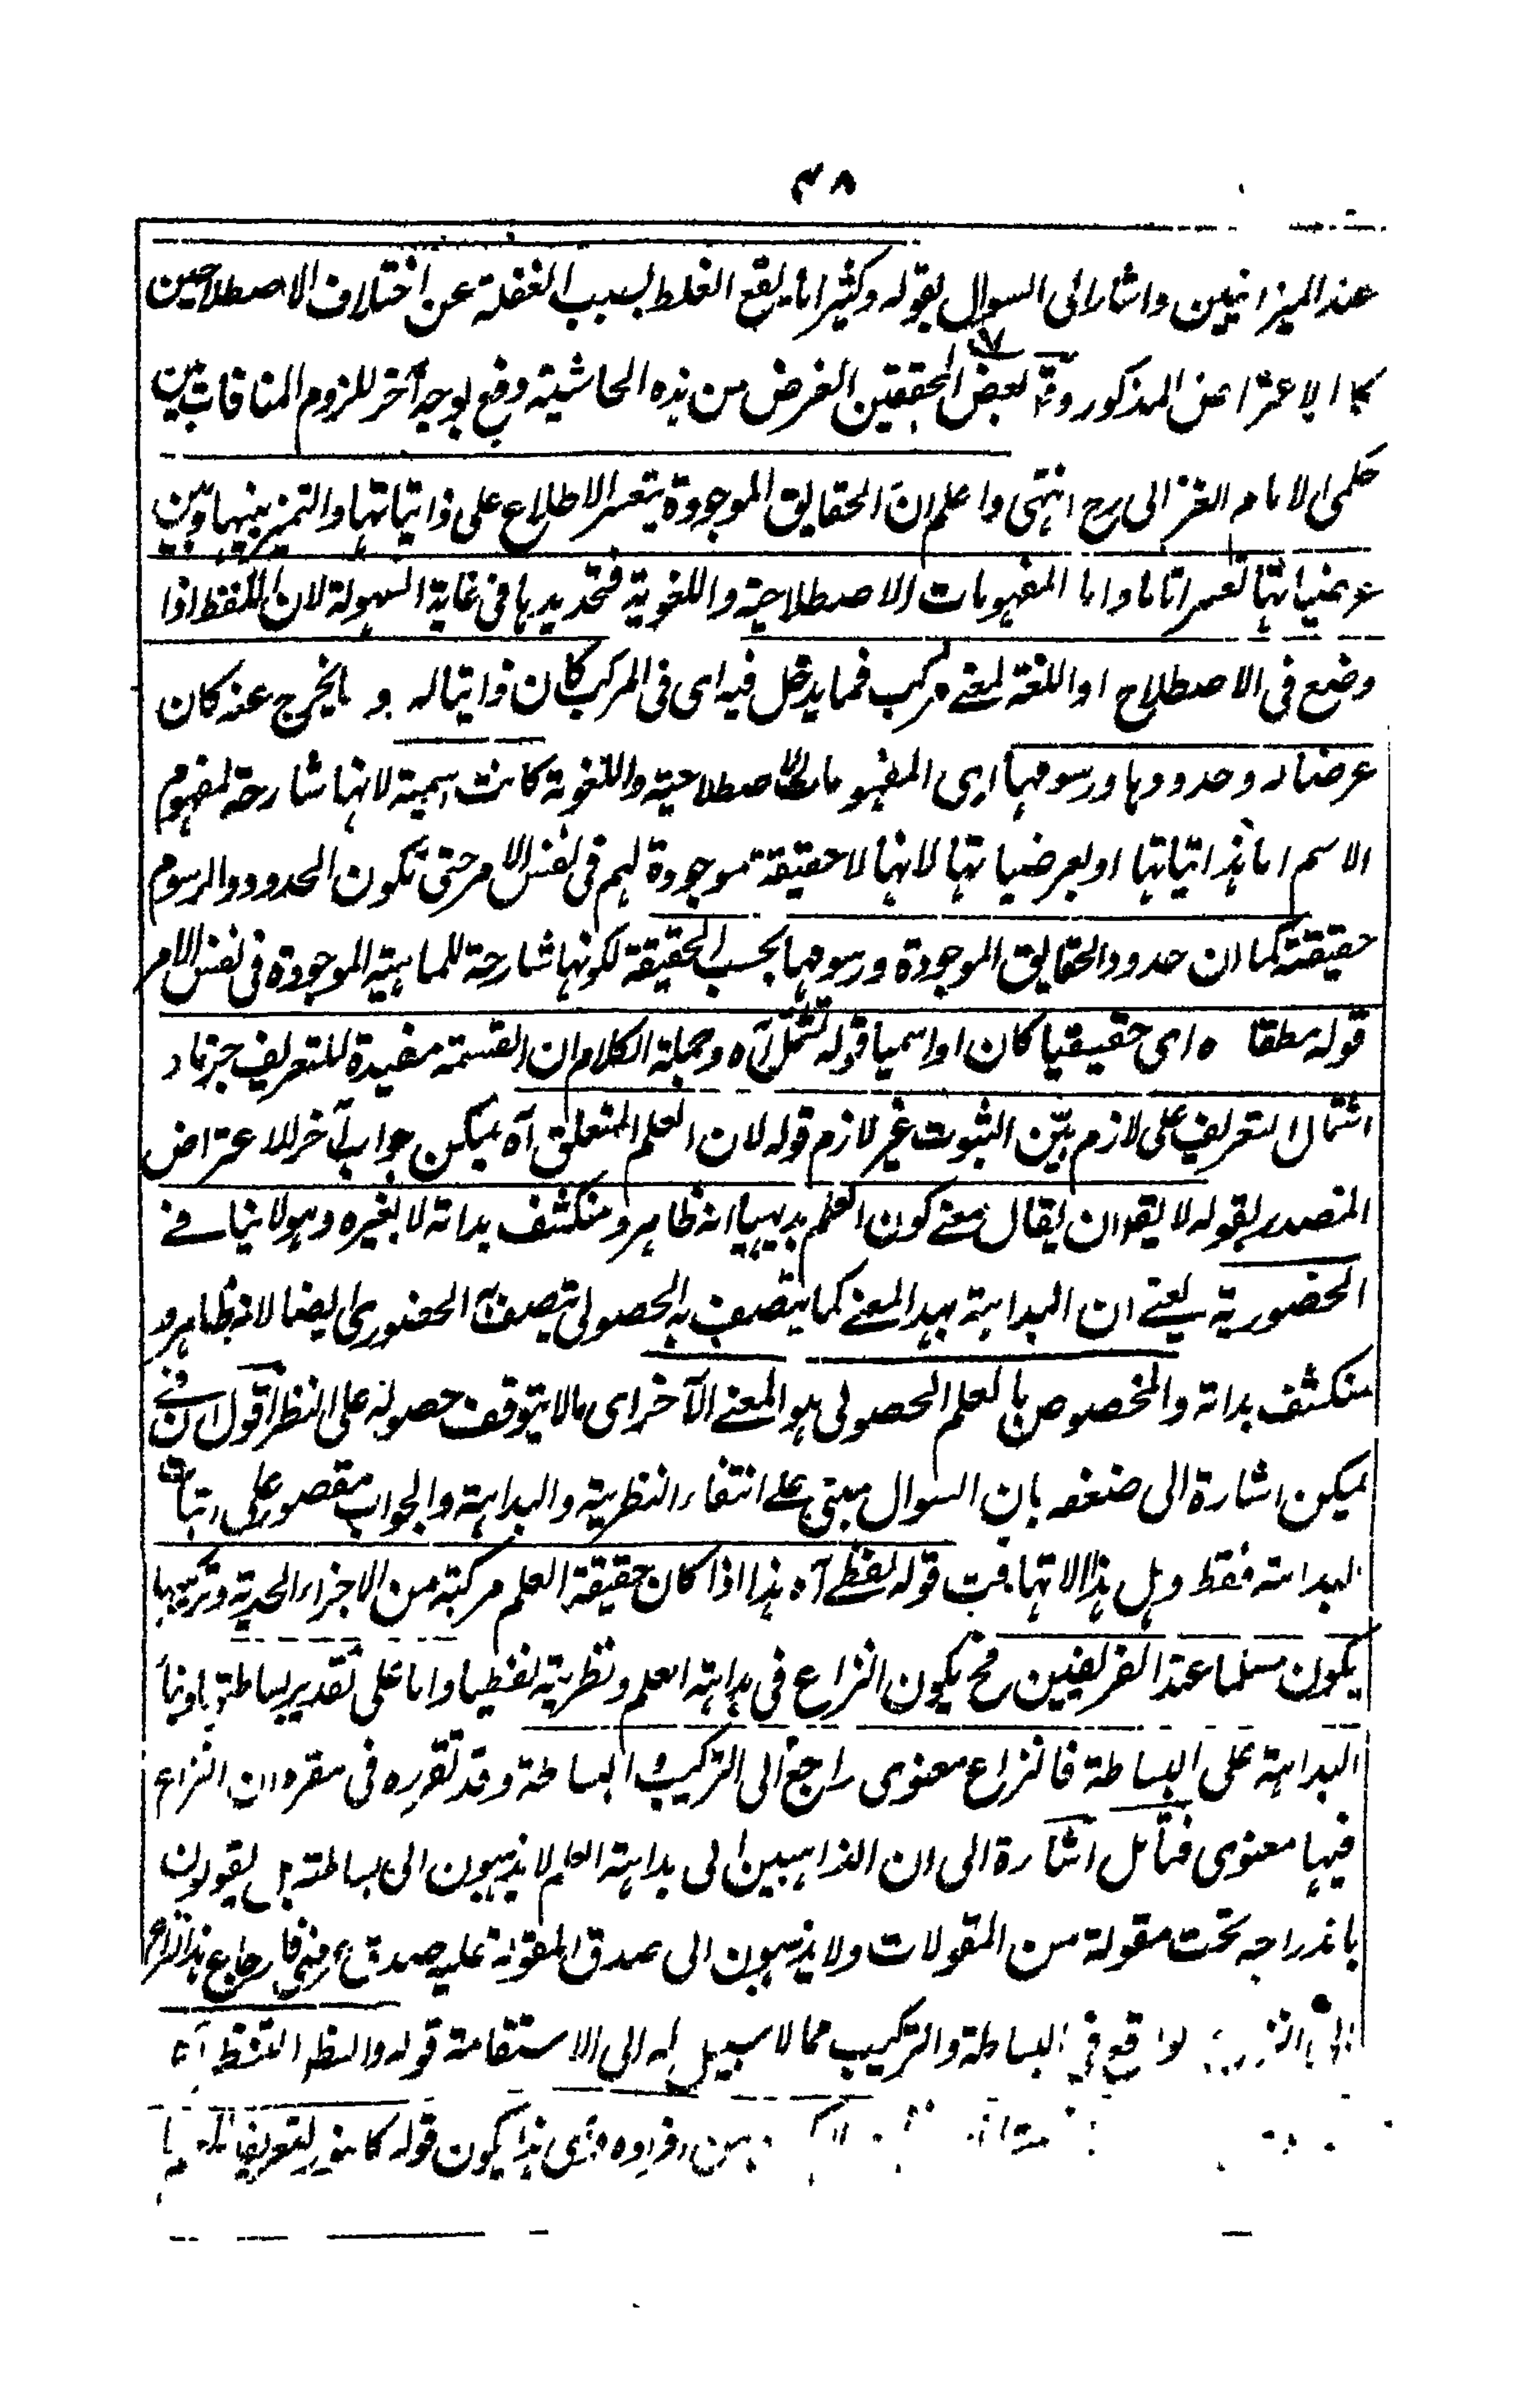 ٤٨
عند الميزانيين واشار الى السوال بقوله وكثيرا ما يقع الغلط بسبب الغفلة عن اختلاف الاصطلاحين
كالاعتراض المذكور وقال بعض المحققين الغرض من هذه الحاشية دفع بوجه آخر للزوم المنافات بين
حكمى الامام الغزالى رح انتهى واعلم ان الحقايق الموجودة يتعسر الاطلاع على ذاتياتها والتمييز بينها وبين
عرضياتها تعسرا تاما واما المفهومات الاصطلاحية واللغوية فتحديدها فى غاية السهولة لان اللفظ اذا
وضع فى الاصطلاح او اللغة لمعنے مركب فما يدخل فيه اى فى المركب كان ذاتيا له و ما يخرج عنه كان
عرضا له وحدودها ورسومها اى المفهومات الاصطلاحية واللغوية كانت اسمية لانها شارحة لمفهوم
الاسم اما بذاتياتها او بعرضياتها لانها لا حقيقة موجودة لهم فى نفس الامر حتى تكون الحدود والرسوم
حقيقتة كما ان حدود الحقايق الموجودة ورسومها بحسب الحقيقة لكونها شارحة للماهية الموجودة فى نفس الامر
قوله مطقا ه اى حقيقيا كان او اسميا قوله تشمل آه وجملة الكلام ان القسمة مفيدة للتعريف جزما و
اشتمال التعريف على لازم بيّن الثبوت غير لازم قوله لان العلم المتعلق آه يمكن جواب آخر للاعتراض
المتصدر بقوله لا يقوان يقال معنے كون العلم بديهيا انه ظاهر ومنكشف بذاته لا بغيره وهو لا ينافے
الحضورية يعنے ان البداهة بهذا المعنے كما يتصف به الحصولى يتصف به الحضورى ايضا لانه ظاهر و
منكشف بذاته والمخصوص بالعلم الحصولى هو المعنے الآخر اى مالا يتوقف حصوله على النظر اقول ان فے
يمكن اشارة الى ضعفه بان السوال مبنى على انتفاء النظرية والبداهة والجواب مقصور على اثبات
البداهة فقط وهل هذا الا تهافت قوله لفظے آه هذا اذا كان حقيقة العلم مركبة من الاجزاء الحدية وتركيبها
يكون مسلما عند الفريقين فح يكون النزاع فى بداهة العلم ونظريته لفظيا واما على تقدير بساطتها وبناء
البداهة على البساطة فالنزاع معنوى راجع الى التركيب والبساطة وقد تقرره فى مقره ان النزاع
فيها معنوى فتأمل اشارة الى ان الذاهبين الى بداهة العلم لا يذهبون الى بساطته بل يقولون
باندراجه تحت مقولة من المقولات ولا يذهبون الى صدق المقولة عليه صدق عرضى فارجاع هذا النزاع
الى النزاع الواقع فى البساطة والتركيب مما لا سبيل له الى الاستقامة قوله والنظر اللفظ آه
من افراده فعلى هذا يكون قوله كا